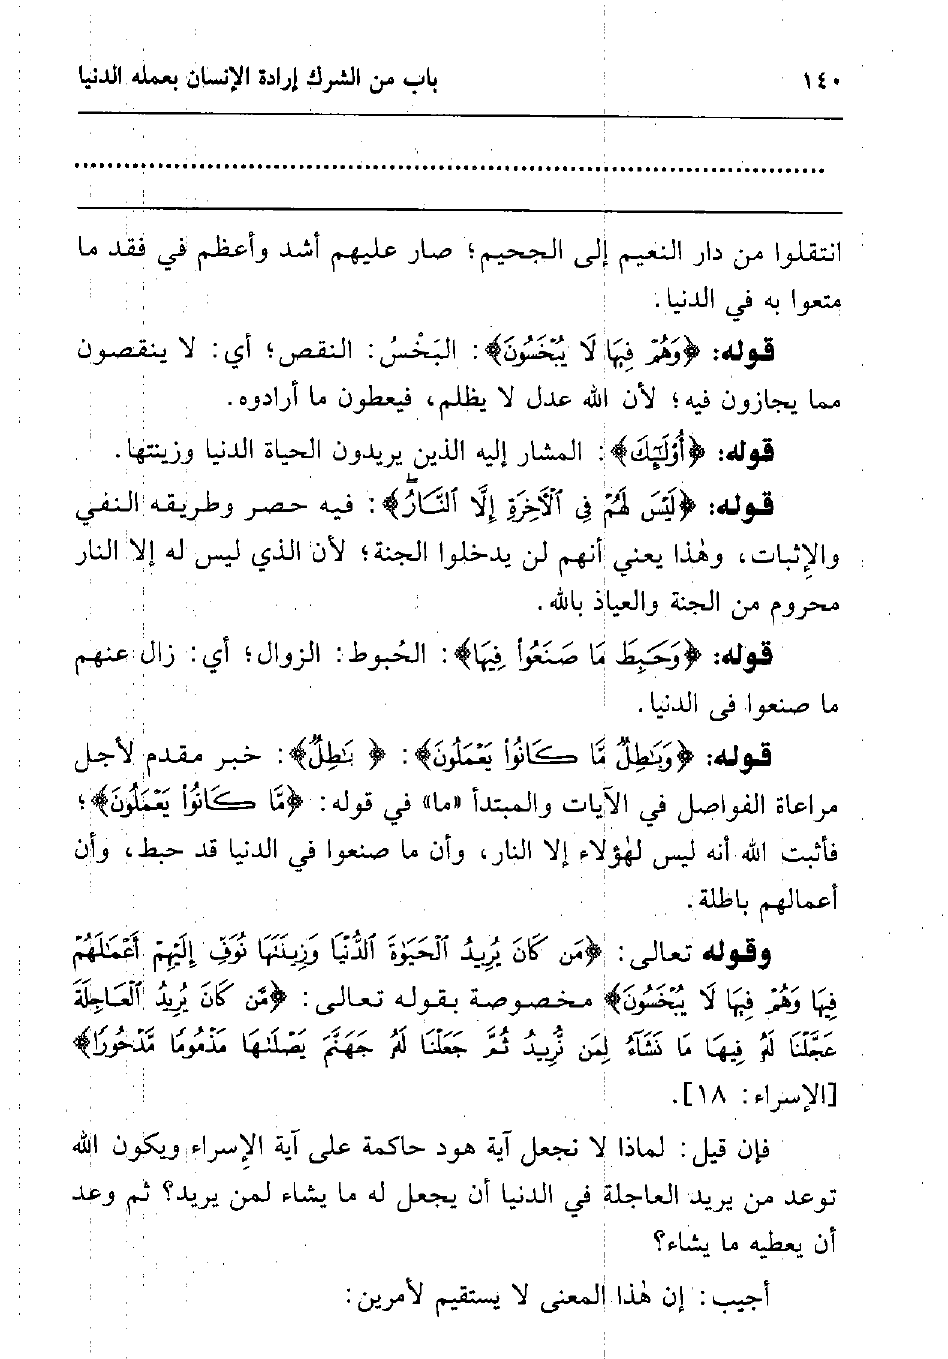 ١٤٠ باب من الشرك إرادة الإنسان بعمله الدنيا
انتقلوا من دار النعيم إلى الجحيم؛ صار عليهم أشد وأعظم في فقد ما
متعوا به في الدنيا.
قوله: ﴿وَهُمْ فِيهَا لَا يُبْخَسُونَ﴾: البَخْسُ: النقص؛ أي: لا ينقصون
مما يجازون فيه؛ لأن الله عدل لا يظلم، فيعطون ما أرادوه.
قوله: ﴿أُوْلَٰٓئِكَ﴾: المشار إليه الذين يريدون الحياة الدنيا وزينتها.
قوله: ﴿لَيْسَ لَهُمْ فِي ٱلْآخِرَةِ إِلَّا ٱلنَّارُ﴾: فيه حصر وطريقه النفي
والإثبات، وهٰذا يعني أنهم لن يدخلوا الجنة؛ لأن الذي ليس له إلا النار
محروم من الجنة والعياذ بالله.
قوله: ﴿وَحَبِطَ مَا صَنَعُوا۟ فِيهَا﴾: الحُبوط: الزوال؛ أي: زال عنهم
ما صنعوا في الدنيا.
قوله: ﴿وَبَٰطِلٌ مَّا كَانُوا۟ يَعْمَلُونَ﴾: ﴿بَٰطِلٌ﴾: خبر مقدم لأجل
مراعاة الفواصل في الآيات والمبتدأ «ما» في قوله: ﴿مَّا كَانُوا۟ يَعْمَلُونَ﴾؛
فأثبت الله أنه ليس لهٰؤلاء إلا النار، وأن ما صنعوا في الدنيا قد حبط، وأن
أعمالهم باطلة.
وقوله تعالى: ﴿مَن كَانَ يُرِيدُ ٱلْحَيَوٰةَ ٱلدُّنْيَا وَزِينَتَهَا نُوَفِّ إِلَيْهِمْ أَعْمَٰلَهُمْ
فِيهَا وَهُمْ فِيهَا لَا يُبْخَسُونَ﴾ مخصوصة بقوله تعالى: ﴿مَّن كَانَ يُرِيدُ ٱلْعَاجِلَةَ
عَجَّلْنَا لَهُۥ فِيهَا مَا نَشَآءُ لِمَن نُّرِيدُ ثُمَّ جَعَلْنَا لَهُۥ جَهَنَّمَ يَصْلَىٰهَا مَذْمُومًا مَّدْحُورًا﴾
[الإسراء: ١٨].
فإن قيل: لماذا لا نجعل آية هود حاكمة على آية الإسراء ويكون الله
توعد من يريد العاجلة في الدنيا أن يجعل له ما يشاء لمن يريد؟ ثم وعد
أن يعطيه ما يشاء؟
أجيب: إن هٰذا المعنى لا يستقيم لأمرين: